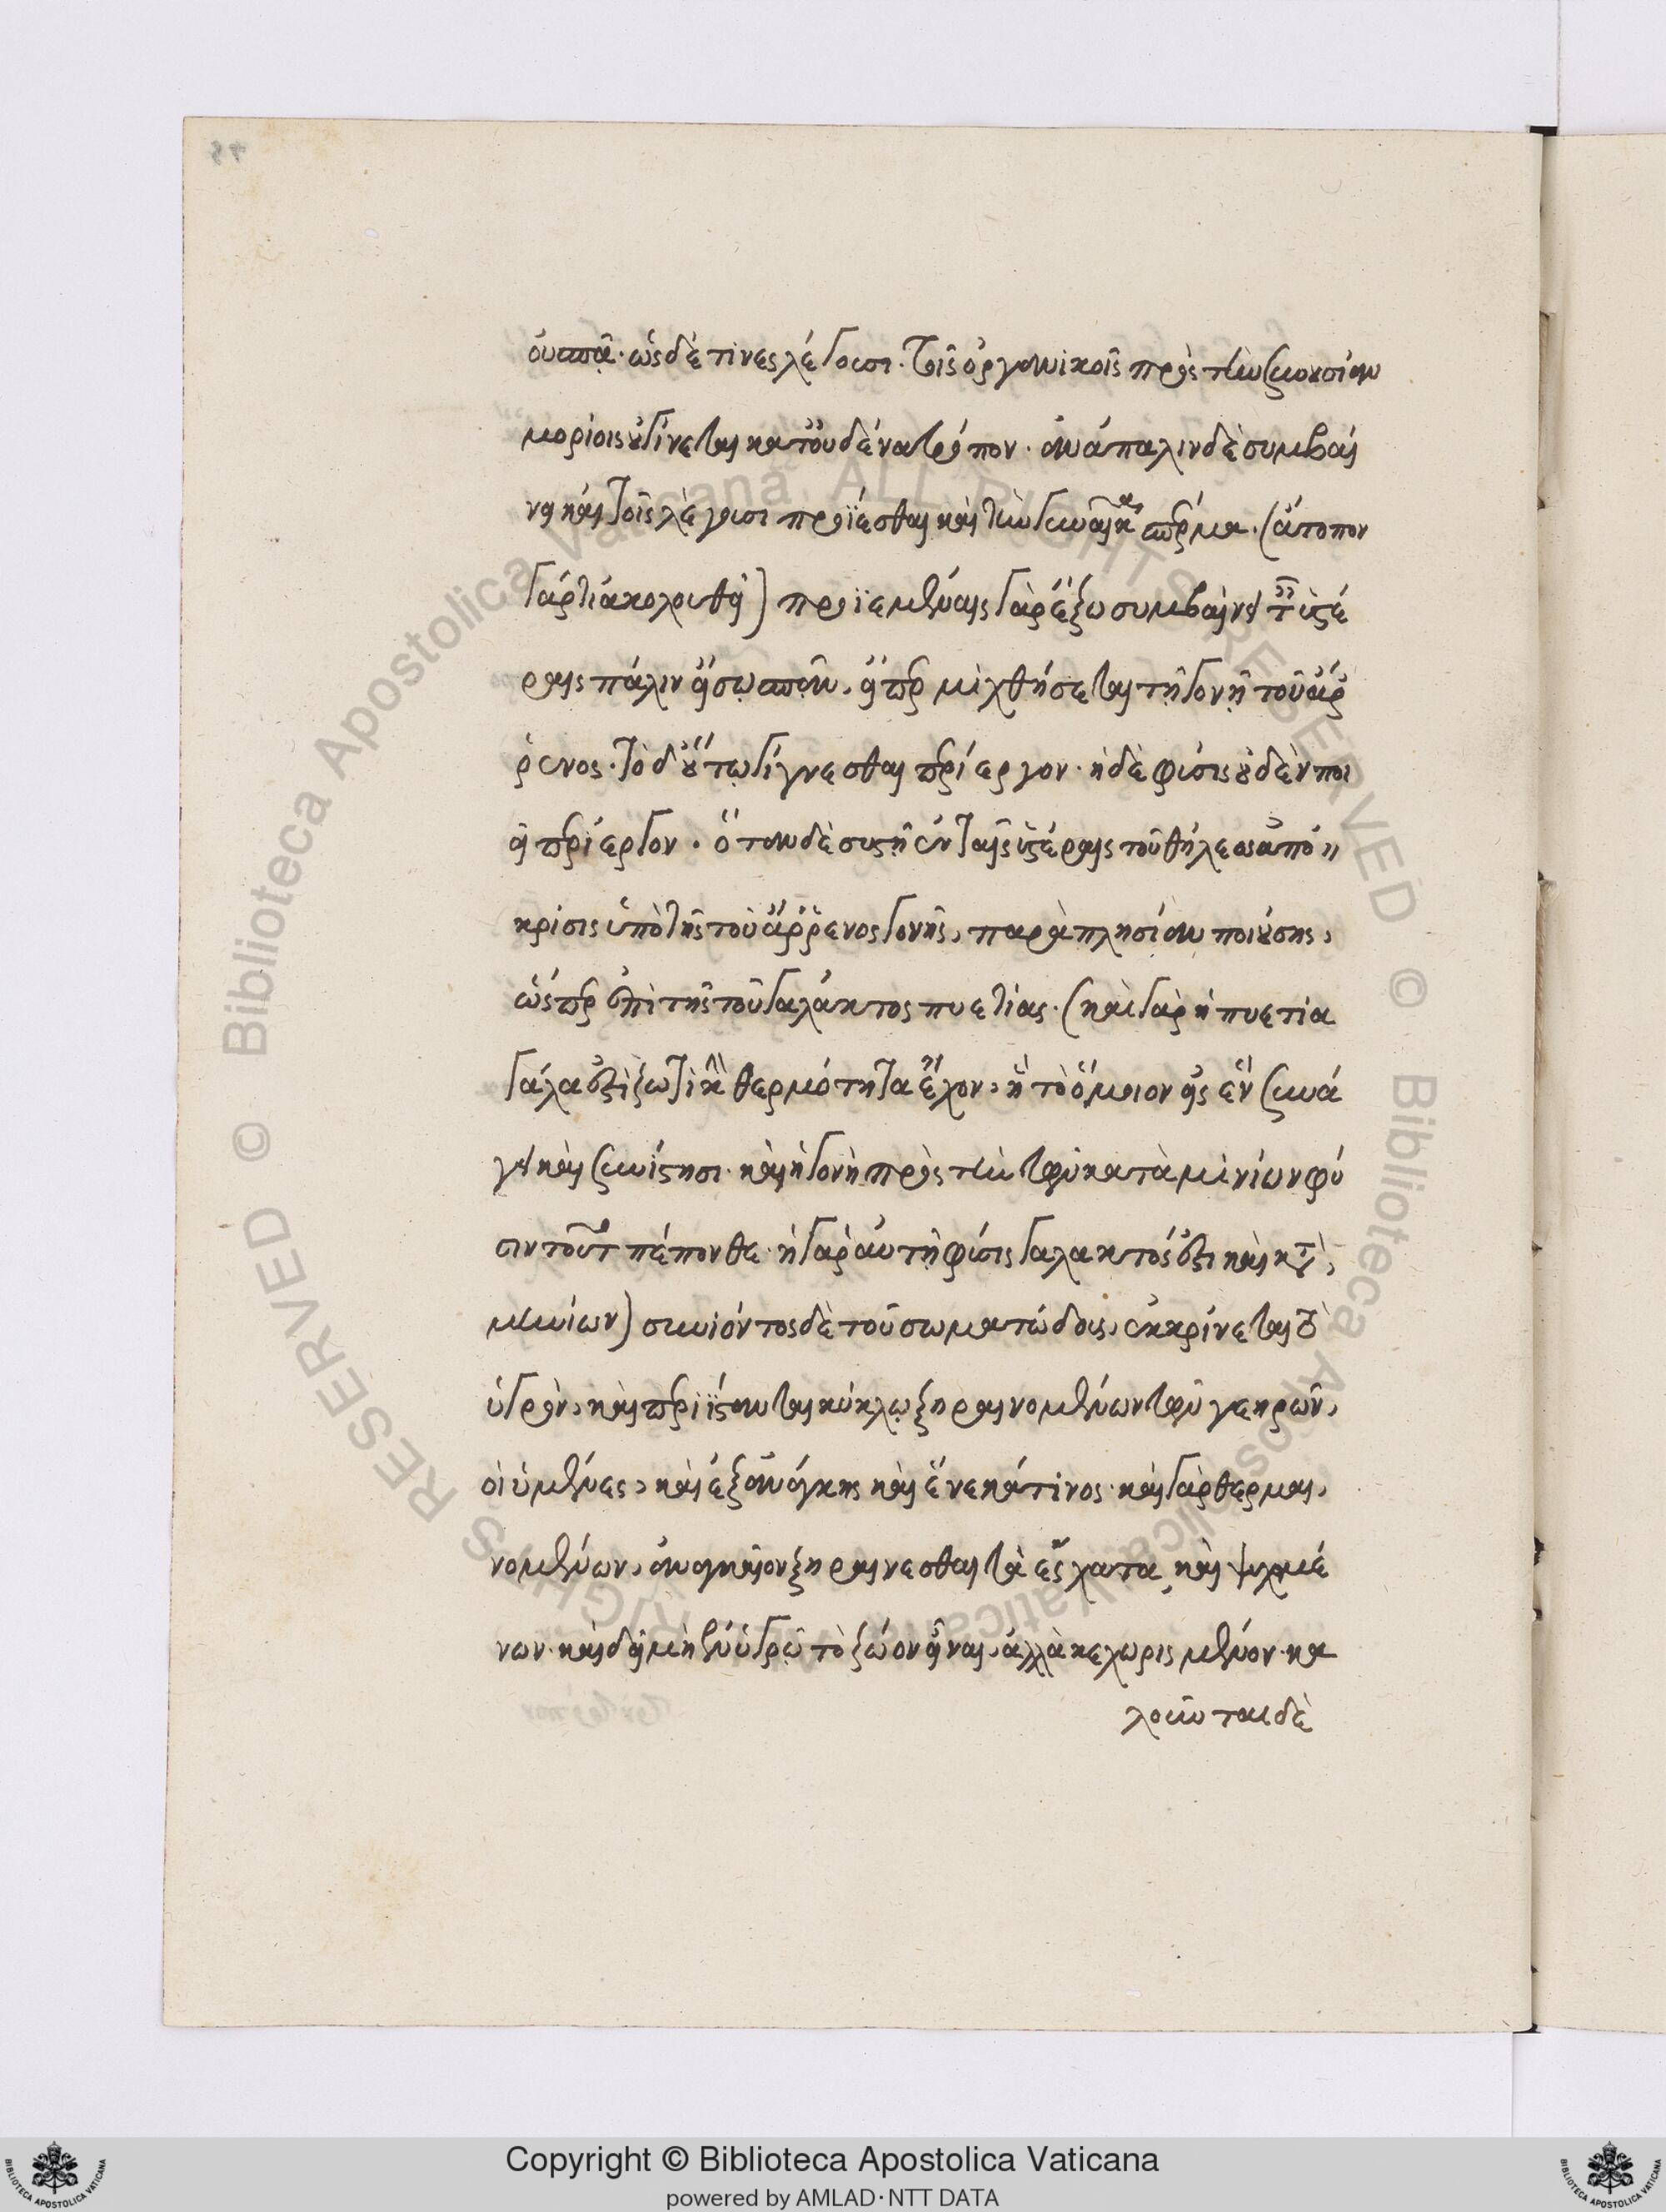 οὐ σπᾷ· ὡς δέ τινες λέγουσι. τοῖς ὀργανικοῖς πρὸς τὴν συνουσίαν
μορίοις οὐ γίνεται κατ' οὐδένα τρόπον. ἀνάπαλιν δὲ συμβαί
νει καὶ τοῖς λέγουσι προΐεσθαι καὶ τὴν γυναῖκα σπέρμα. (ἄτοπον
γάρ τι ἀκολουθεῖ) προϊεμέναις γὰρ ἔξω συμβαίνει ταῖς ὑστέ
ραις πάλιν εἴσω σπᾶν, εἴπερ μιχθήσεται τῇ γονῇ τοῦ ἄρ
ῥενος. τὸ δ' οὕτω γίγνεσθαι περίεργον. ἡ δὲ φύσις οὐδὲν ποι
εῖ περίεργον. ὅταν δὲ συστῇ ἐν ταῖς ὑστέραις τοῦ θήλεος ἀπό
κρισις ὑπὸ τῆς τοῦ ἄῤῥενος γονῆς, παραπλησίαν ποιούσης,
ὥσπερ ἐπὶ τῆς τοῦ γάλακτος πυετίας. (καὶ γὰρ ἡ πυετία
γάλα ἐστὶ ζωτικὴν θερμότητα ἔχον, ἣ τὸ ὅμοιον εἰς ἓν συνά
γει καὶ συνίστησι. καὶ ἡ γονὴ πρὸς τὴν τῶν καταμινίων φύ
σιν τοῦτο πέπονθε. ἡ γὰρ αὐτὴ φύσις γάλακτός ἐστι καὶ κατα
μηνίων) συνιόντος δὲ τοῦ σωματώδους, ἐκκρίνεται τὸ
ὑγρὸν, καὶ περιΐστανται κύκλῳ ξηραινομένων τῶν γεηρῶν,
οἱ ὑμένες, καὶ ἐξ ἀνάγκης καὶ ἕνεκά τινος. καὶ γὰρ θερμαι,
νομένων, ἀναγκαῖον ξηραίνεσθαι τὰ ἔσχατα, καὶ ψυχομέ
νων. καὶ δεῖ μὴ ἐν ὑγρῷ τὸ ζῷον εἶναι, ἀλλὰ κεχωρισμένον. κα
λοῦνται δὲ
Copyright © Biblioteca Apostolica Vaticana
powered by AMLAD·NTT DATA